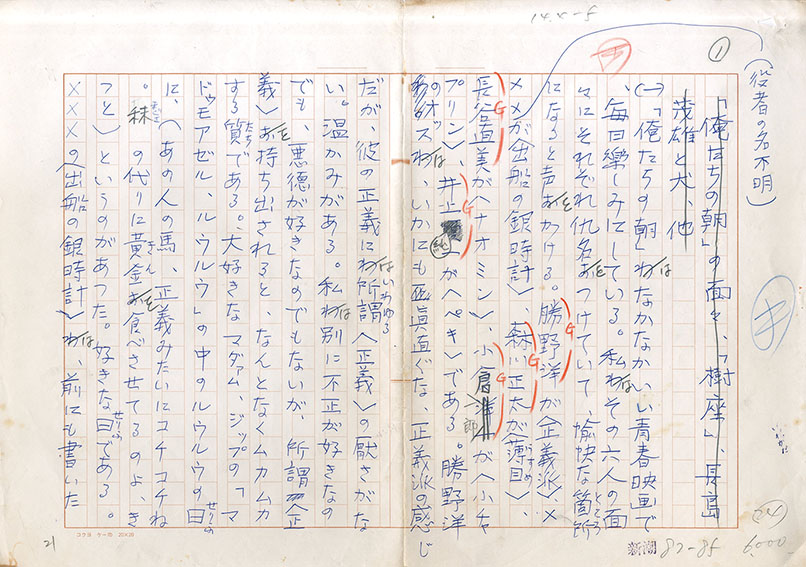 14.X-5
①
(役者の名不明)
「俺たちの朝」の面々、「樹座」、長島
茂雄と犬、他
(一)「俺たちの朝」はなかなかいい青春映画で
、毎日樂しみにしている。私はその六人の面
々にそれぞれ仇名をつけていて、愉快な箇所
になると声をかける。勝野洋が〈正義派〉×
××が〈出船の銀時計〉、森川正太が〈薄目〉、
長谷直美が〈ナオミン〉、小倉一郎が〈小チャ
プリン〉、井上純一が〈ペキ〉である。勝野洋
のオッスは、いかにも眞直ぐな、正義派の感じ
だが、彼の正義には所謂〈正義〉の厭さがな
い。温かみがある。私は別に不正が好きなの
でも、悪德が好きなのでもないが、所謂〈正
義〉を持ち出されると、なんとなくムカムカ
する質である。大好きなマダァム、ジップの「マ
ドゥモアゼル、ルウルウ」の中のルウルウの曰
に、〈あの人の馬、正義みたいにコチコチね
。秣の代りに黃金を食べさせてるのよ、き
つと〉というのがあつた。好きな曰である。
×××の〈出船の銀時計〉は、前にも書いた
21
コクヨ ケ-10 20×20
新潮
82-85
6,000